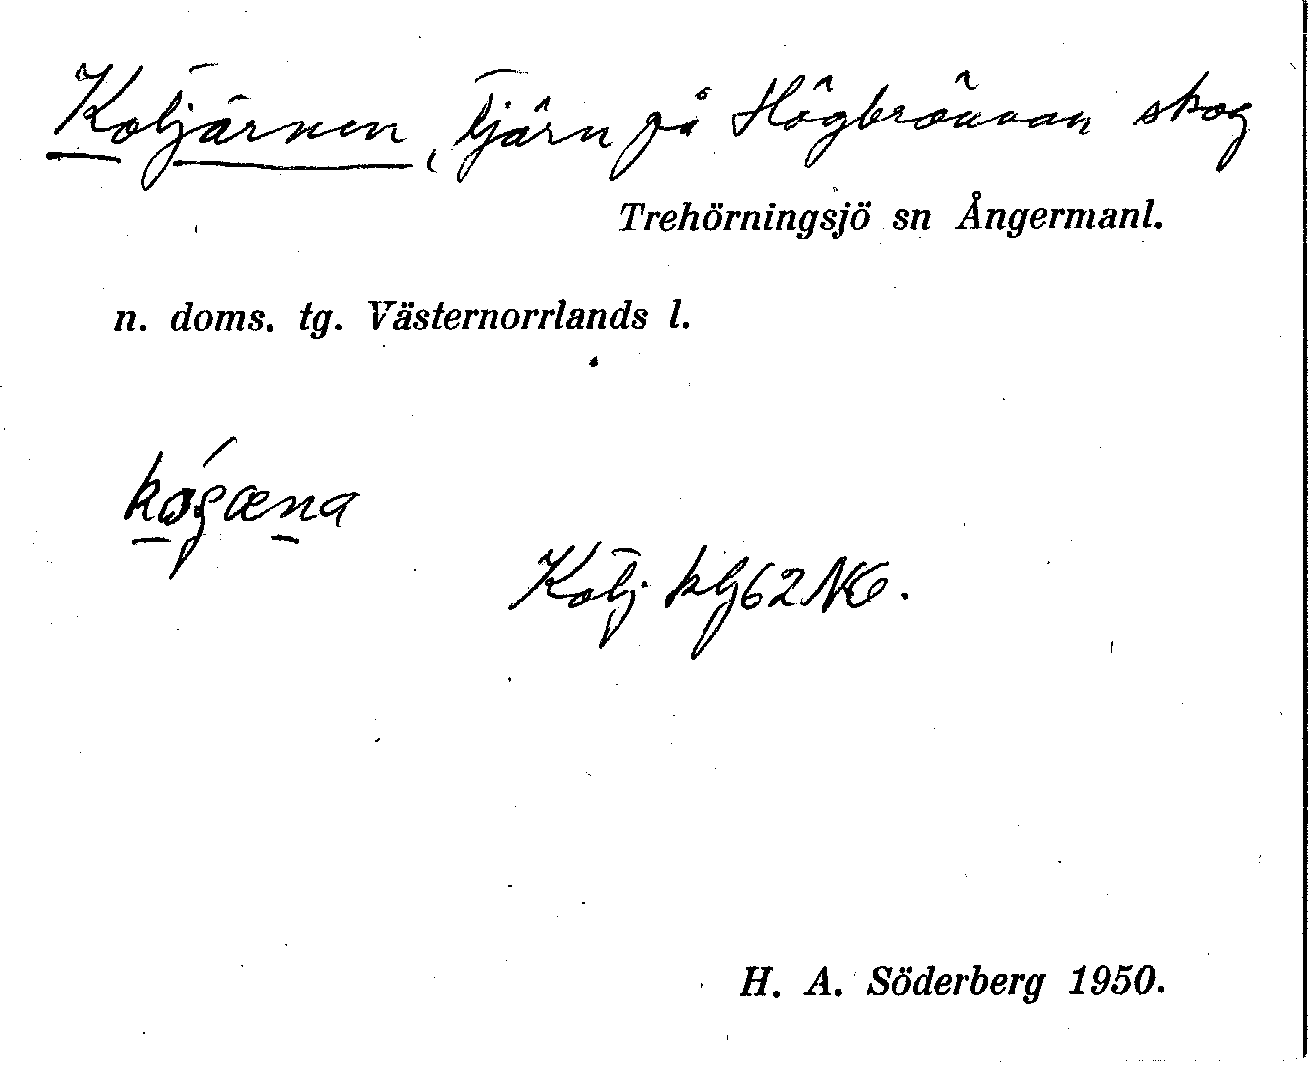 Kotjärnen, Tjärn på Högbrännan skog
Trehörningsjö sn Ångermanl.
n. doms. tg. Västernorrlands l.
Kotj
H. A. Söderberg 1950.